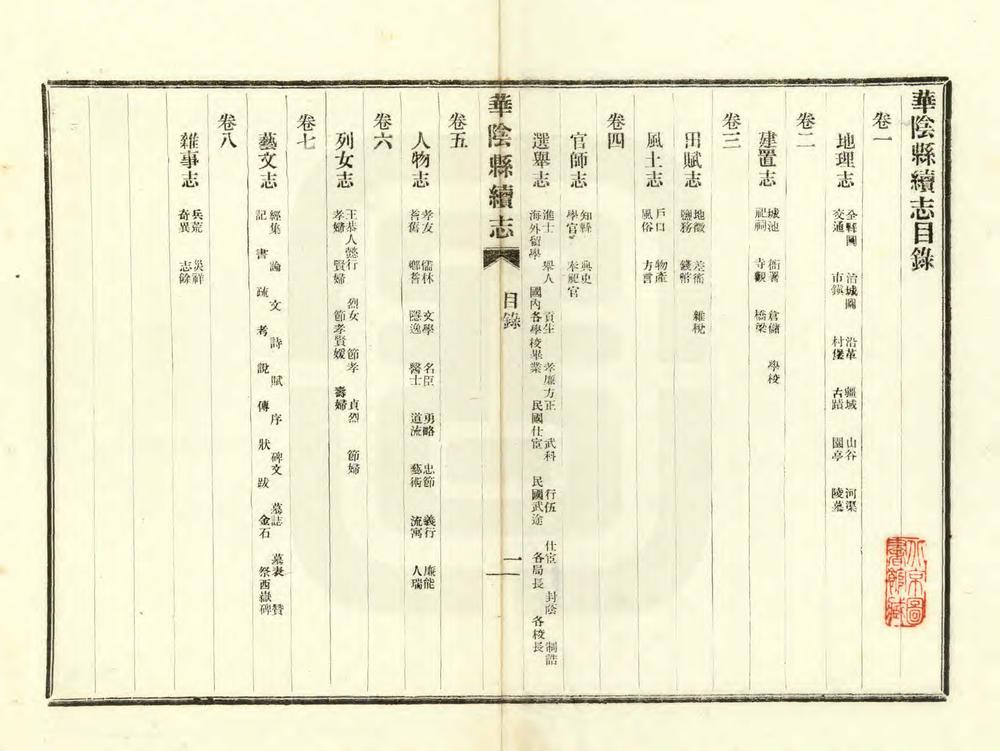 華陰縣續志目錄
卷一
地理志
全縣圖 治城圖 沿革 疆域 山谷 河渠
交通 市鎮 村堡 古蹟 園亭 陵墓
卷二
建置志
城池 衙署 倉儲 學校
祀祠 寺觀 橋梁
卷三
田賦志
地徵 差徭 雜稅
鹽務 錢幣
風土志
戶口 物產
風俗 方言
卷四
官師志
知縣 典史
學官 奉祀官
選舉志
進士 舉人 貢生 孝廉方正 武科 行伍 仕宦 封蔭 制誥
海外留學 國內各學校畢業 民國仕宦 民國武途 各局長 各校長
華陰縣續志
目錄
一
卷五
人物志
孝友 儒林 文學 名臣 勇略 忠節 義行 廉能
耆舊 鄉耆 隱逸 醫士 道流 藝術 流寓 人瑞
卷六
列女志
王恭人懿行 烈女 節孝 貞烈 節婦
孝婦 賢婦 節孝賢媛 壽婦
卷七
藝文志
經集 論 文 詩 賦 序 碑文 墓誌 墓表 贊
記 書 疏 考 說 傳 狀 跋 金石 祭西嶽碑
卷八
雜事志
兵荒 災祥
奇異 志餘
北京圖
書館藏